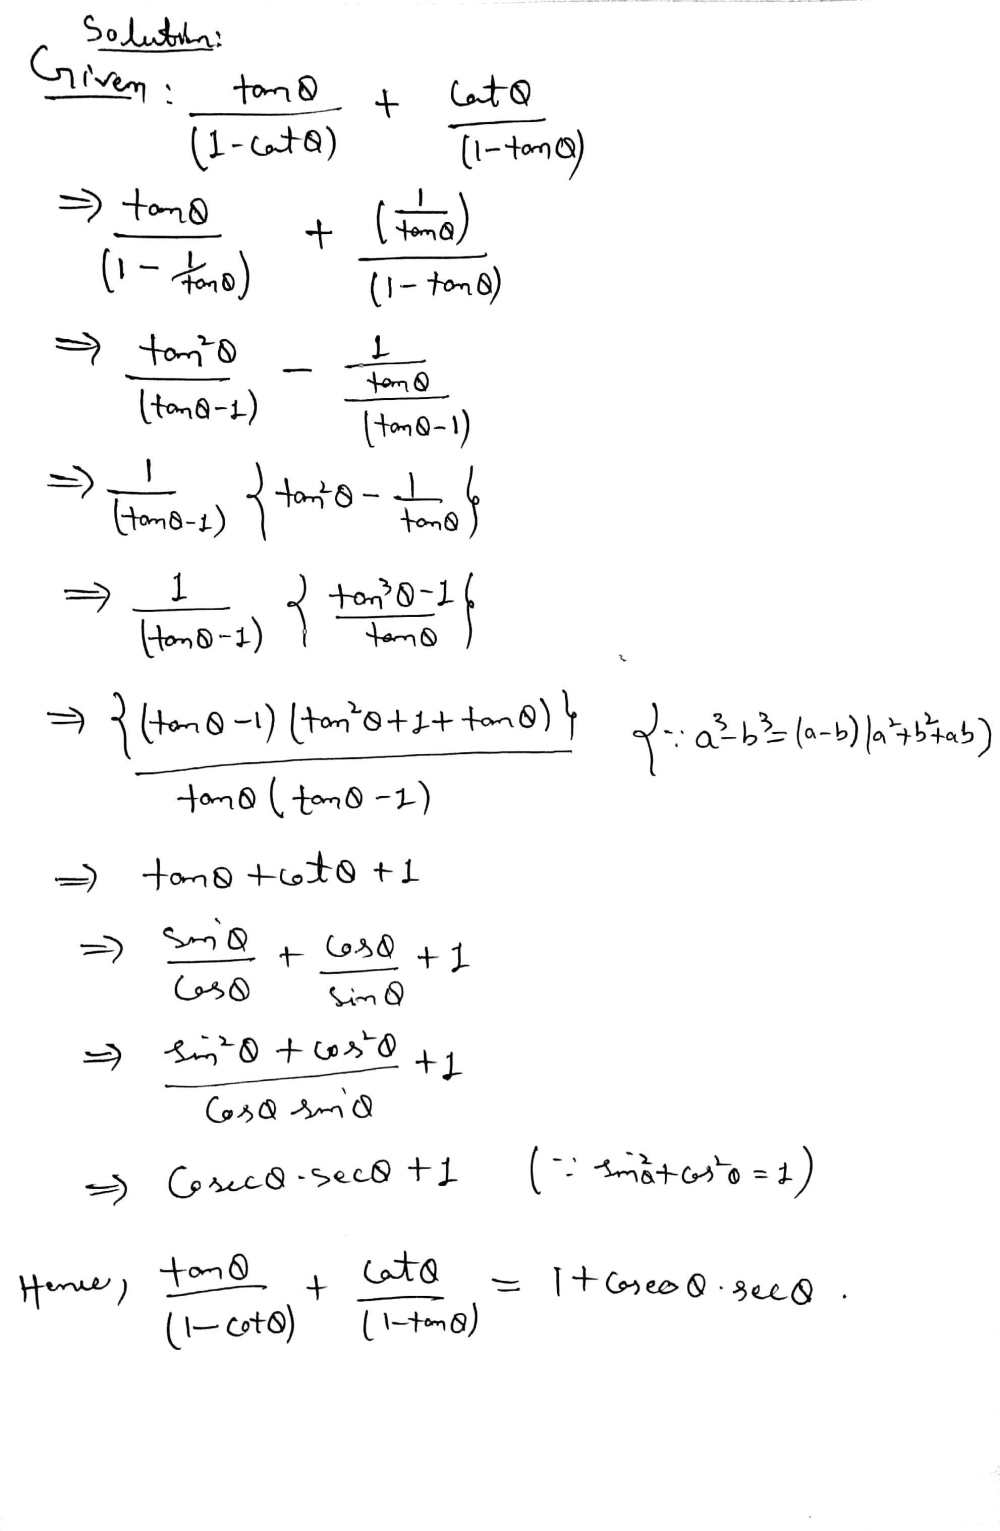 Solution:
Given: tanθ/(1-cotθ) + cotθ/(1-tanθ)
⇒ tanθ/(1 - 1/tanθ) + (1/tanθ)/(1-tanθ)
⇒ tan²θ/(tanθ-1) - (1/tanθ)/(tanθ-1)
⇒ 1/(tanθ-1) {tan²θ - 1/tanθ}
⇒ 1/(tanθ-1) {(tan³θ-1)/tanθ}
⇒ {(tanθ-1)(tan²θ+1+tanθ)}/tanθ(tanθ-1) {∵ a³-b³=(a-b)(a²+b²+ab)
⇒ tanθ+cotθ+1
⇒ sinθ/cosθ + cosθ/sinθ + 1
⇒ (sin²θ+cos²θ)/(cosθ sinθ) + 1
⇒ Cosecθ·secθ+1 (∵ sin²θ+cos²θ=1)
Hence, tanθ/(1-cotθ) + cotθ/(1-tanθ) = 1+cosecθ·secθ.